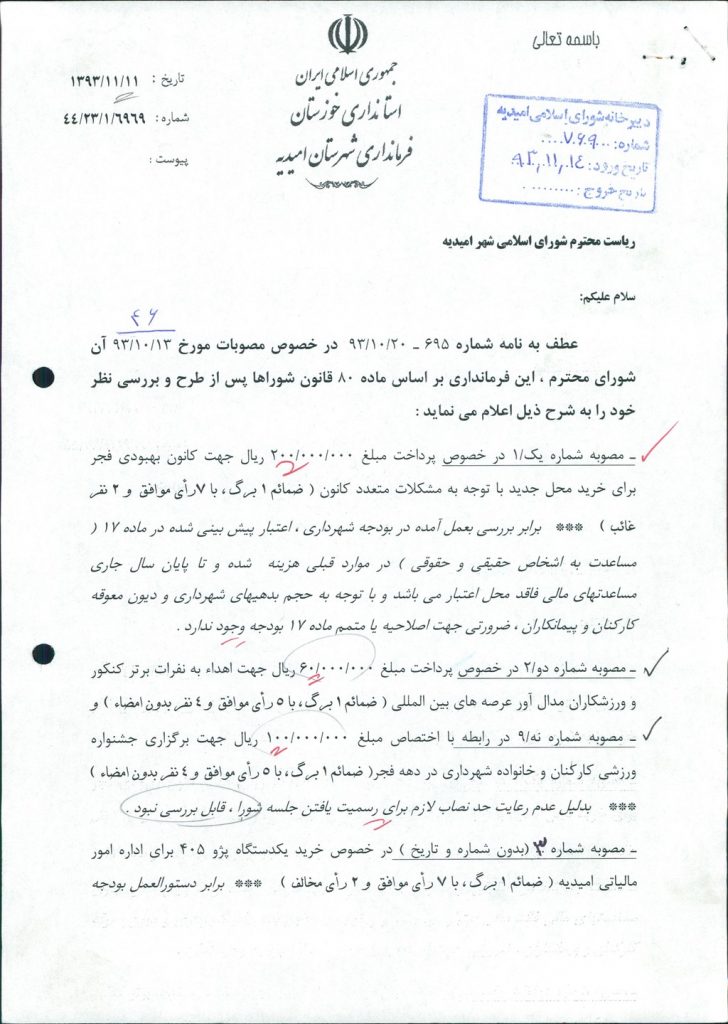 باسمه تعالی
جمهوری اسلامی ایران
استانداری خوزستان
فرمانداری شهرستان امیدیه
تاریخ : ۱۳۹۳/۱۱/۱۱
شماره: ۴۴/۲۳/۱/۶۹۶۹
پیوست :
دبیرخانه شورای اسلامی امیدیه
شماره: ....۷۶۹۰...
تاریخ ورود: ۹۳،۱۱،۱۴
تاریخ خروج : ..........
ریاست محترم شورای اسلامی شهر امیدیه
سلام علیکم:
۴۶
عطف به نامه شماره ۶۹۵ ـ ۹۳/۱۰/۲۰ در خصوص مصوبات مورخ ۹۳/۱۰/۱۳ آن
شورای محترم ، این فرمانداری بر اساس ماده ۸۰ قانون شوراها پس از طرح و بررسی نظر
خود را به شرح ذیل اعلام می نماید :
ـ مصوبه شماره یک/۱ در خصوص پرداخت مبلغ ۲۰۰/۰۰۰/۰۰۰ ریال جهت کانون بهبودی فجر
برای خرید محل جدید با توجه به مشکلات متعدد کانون ( ضمائم ۱ برگ، با ۷ رأی موافق و ۲ نفر
غائب ) *** برابر بررسی بعمل آمده در بودجه شهرداری ، اعتبار پیش بینی شده در ماده ۱۷ (
مساعدت به اشخاص حقیقی و حقوقی ) در موارد قبلی هزینه شده و تا پایان سال جاری
مساعدتهای مالی فاقد محل اعتبار می باشد و با توجه به حجم بدهیهای شهرداری و دیون معوقه
کارکنان و پیمانکاران ، ضرورتی جهت اصلاحیه یا متمم ماده ۱۷ بودجه وجود ندارد .
ـ مصوبه شماره دو/۲ در خصوص پرداخت مبلغ ۶۰/۰۰۰/۰۰۰ ریال جهت اهداء به نفرات برتر کنکور
و ورزشکاران مدال آور عرصه های بین المللی ( ضمائم ۱ برگ، با ۵ رأی موافق و ٤ نفر بدون امضاء ) و
ـ مصوبه شماره نه/۹ در رابطه با اختصاص مبلغ ۱۰۰/۰۰۰/۰۰۰ ریال جهت برگزاری جشنواره
ورزشی کارکنان و خانواده شهرداری در دهه فجر( ضمائم ۱ برگ، با ۵ رأی موافق و ٤ نفر بدون امضاء )
*** بدلیل عدم رعایت حد نصاب لازم برای رسمیت یافتن جلسه شورا ، قابل بررسی نبود .
ـ مصوبه شماره ۳ (بدون شماره و تاریخ ) در خصوص خرید یکدستگاه پژو ۴۰۵ برای اداره امور
مالیاتی امیدیه ( ضمائم ۱ برگ، با ۷ رأی موافق و ۲ رأی مخالف ) *** برابر دستورالعمل بودجه